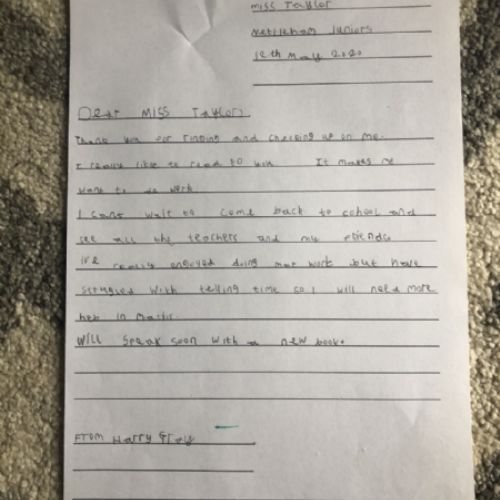 Miss Taylor
Nettleham Juniors
12th May 2020
Dear Miss Taylor
Thank you for ringing and checking up on me.
I really like to read to you. It makes me
want to do work.
I cant wait to come back to school and
see all the teachers and my friends
Ive really enjoyed doing my work but have
strugled with telling time so I will need more
help in maths.
Will speak soon with a new book.
From Harry Gray